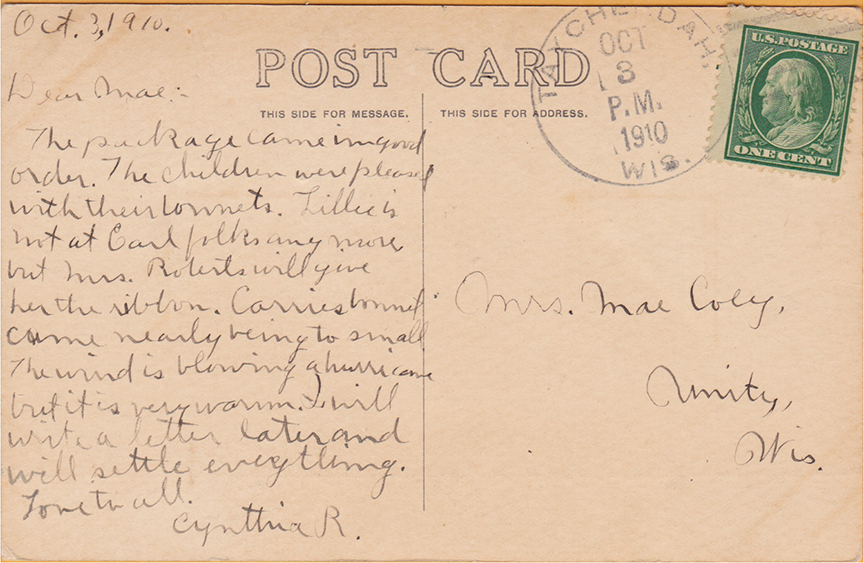 Oct. 3, 1910.
POST CARD
THIS SIDE FOR MESSAGE.
THIS SIDE FOR ADDRESS.
TAYCHEEDAH,
OCT
3
P.M.
1910
WIS.
U.S. POSTAGE
ONE CENT
Dear Mae:-
The package came in good
order. The children were pleased
with their bonnets. Lillie is
not at Earl folks any more
but Mrs. Roberts will give
her the ribbon. Carries bonnet
came nearly being to small
The wind is blowing a hurricane
but it is very warm. I will
write a letter later and
will settle everything.
Love to all.
Cynthia R.
Mrs. Mae Coley,
Unity,
Wis.